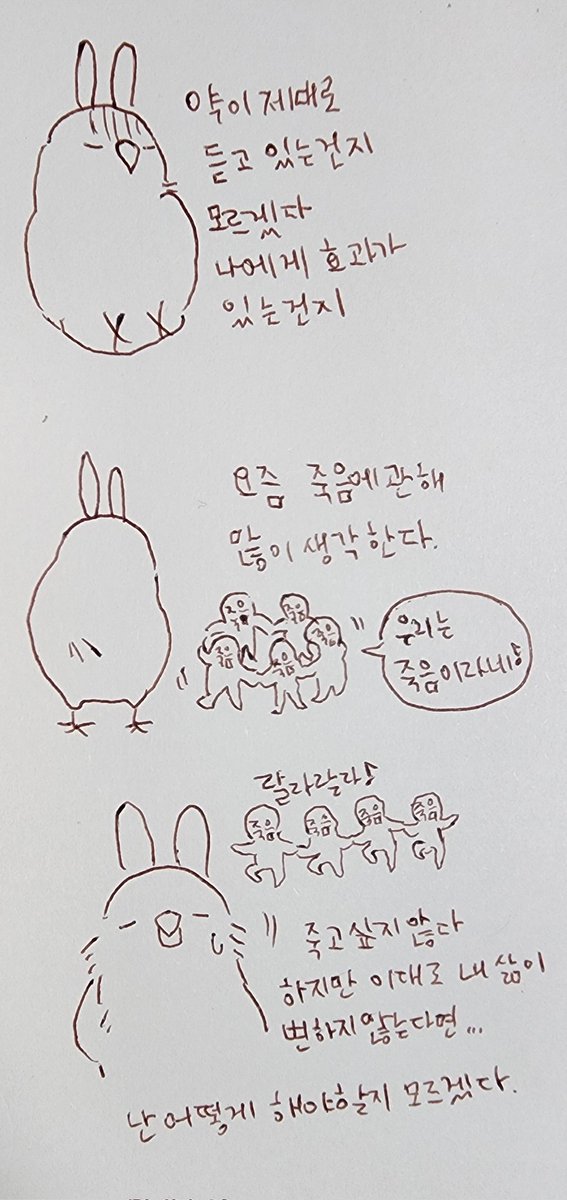 약이 제대로
듣고 있는건지
모르겠다
나에게 효과가
있는건지
요즘 죽음에 관해
많이 생각한다.
죽음
죽음
죽음
죽음
죽음
우리는
죽음이라네♪
랄라랄라♪
죽음
죽음
죽음
죽음
죽고싶지않다
하지만 이대로 내 삶이
변하지않는다면...
난 어떻게 해야할지 모르겠다.